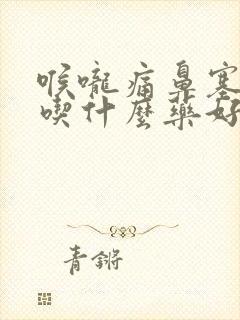 喉嚨痛鼻塞
喫什麼藥好
青鏘